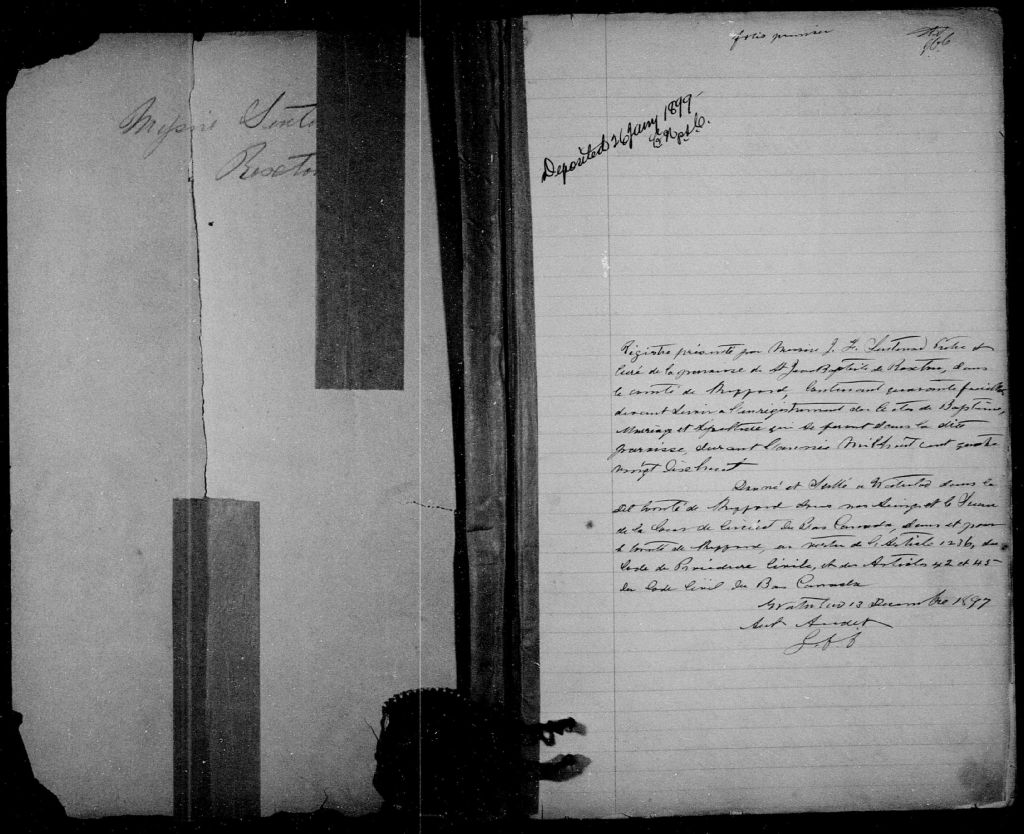 Messire
Roxton
folio premier
Deposited 26 Jany 1899
Registre présenté par Messire J. H. Ptre et
Curé de la paroisse de St Jean Baptiste de Roxton, dans
le comté de Shefford, Contenant quarante feuillets
devant servir a l'enregistrement des Actes de Baptême,
Mariage et Sépulture qui se feront dans la dite
paroisse, durant l'année Mil huit cent quatre
vingt dix huit
Donné et Scellé a Waterloo dans le
dit Comté de Shefford sous nos Seing et le Sceau
de la Cour de Circuit du Bas Canada, dans et pour
le Comté de Shefford, en vertu de l'Article 1236, du
Code de Procédure Civile, et des Articles 42 et 45
du Code Civil du Bas Canada
Waterloo 13 Decembre 1897
Ant Audet